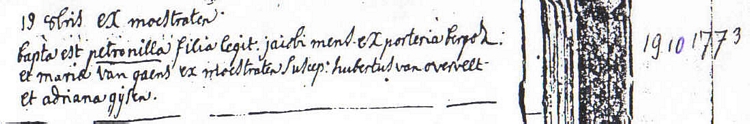 19 8bris ex moestraten.
bapta est petronilla filia legit. jacobi mens ex porteria
et maria van gaens ex moestraten suscep: hubertus van overvelt
et adriana gijsen.
19 10 1773